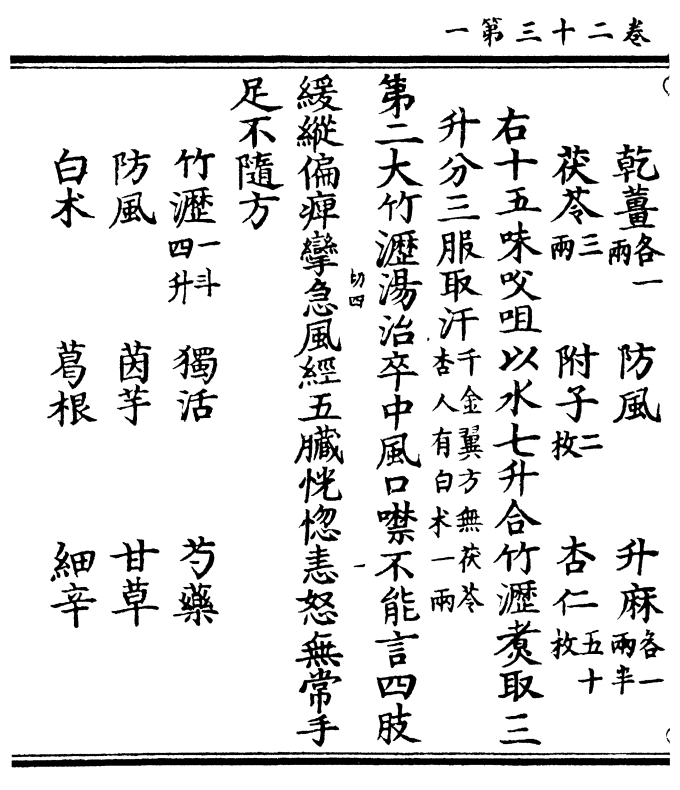 卷二十三第一
乾薑各一兩 防風 升麻各一兩半
茯苓三兩 附子二枚 杏仁五十枚
右十五味㕮咀以水七升合竹瀝煮取三
升分三服取汗千金翼方無茯苓杏人有白朮一兩
第二大竹瀝湯治卒中風口噤不能言四肢
緩縱偏痺攣急風經五臟恍惚恚怒無常手
足不隨方
竹瀝一斗四升 獨活 芍藥
防風 茵芋 甘草
白朮 葛根 細辛
切四